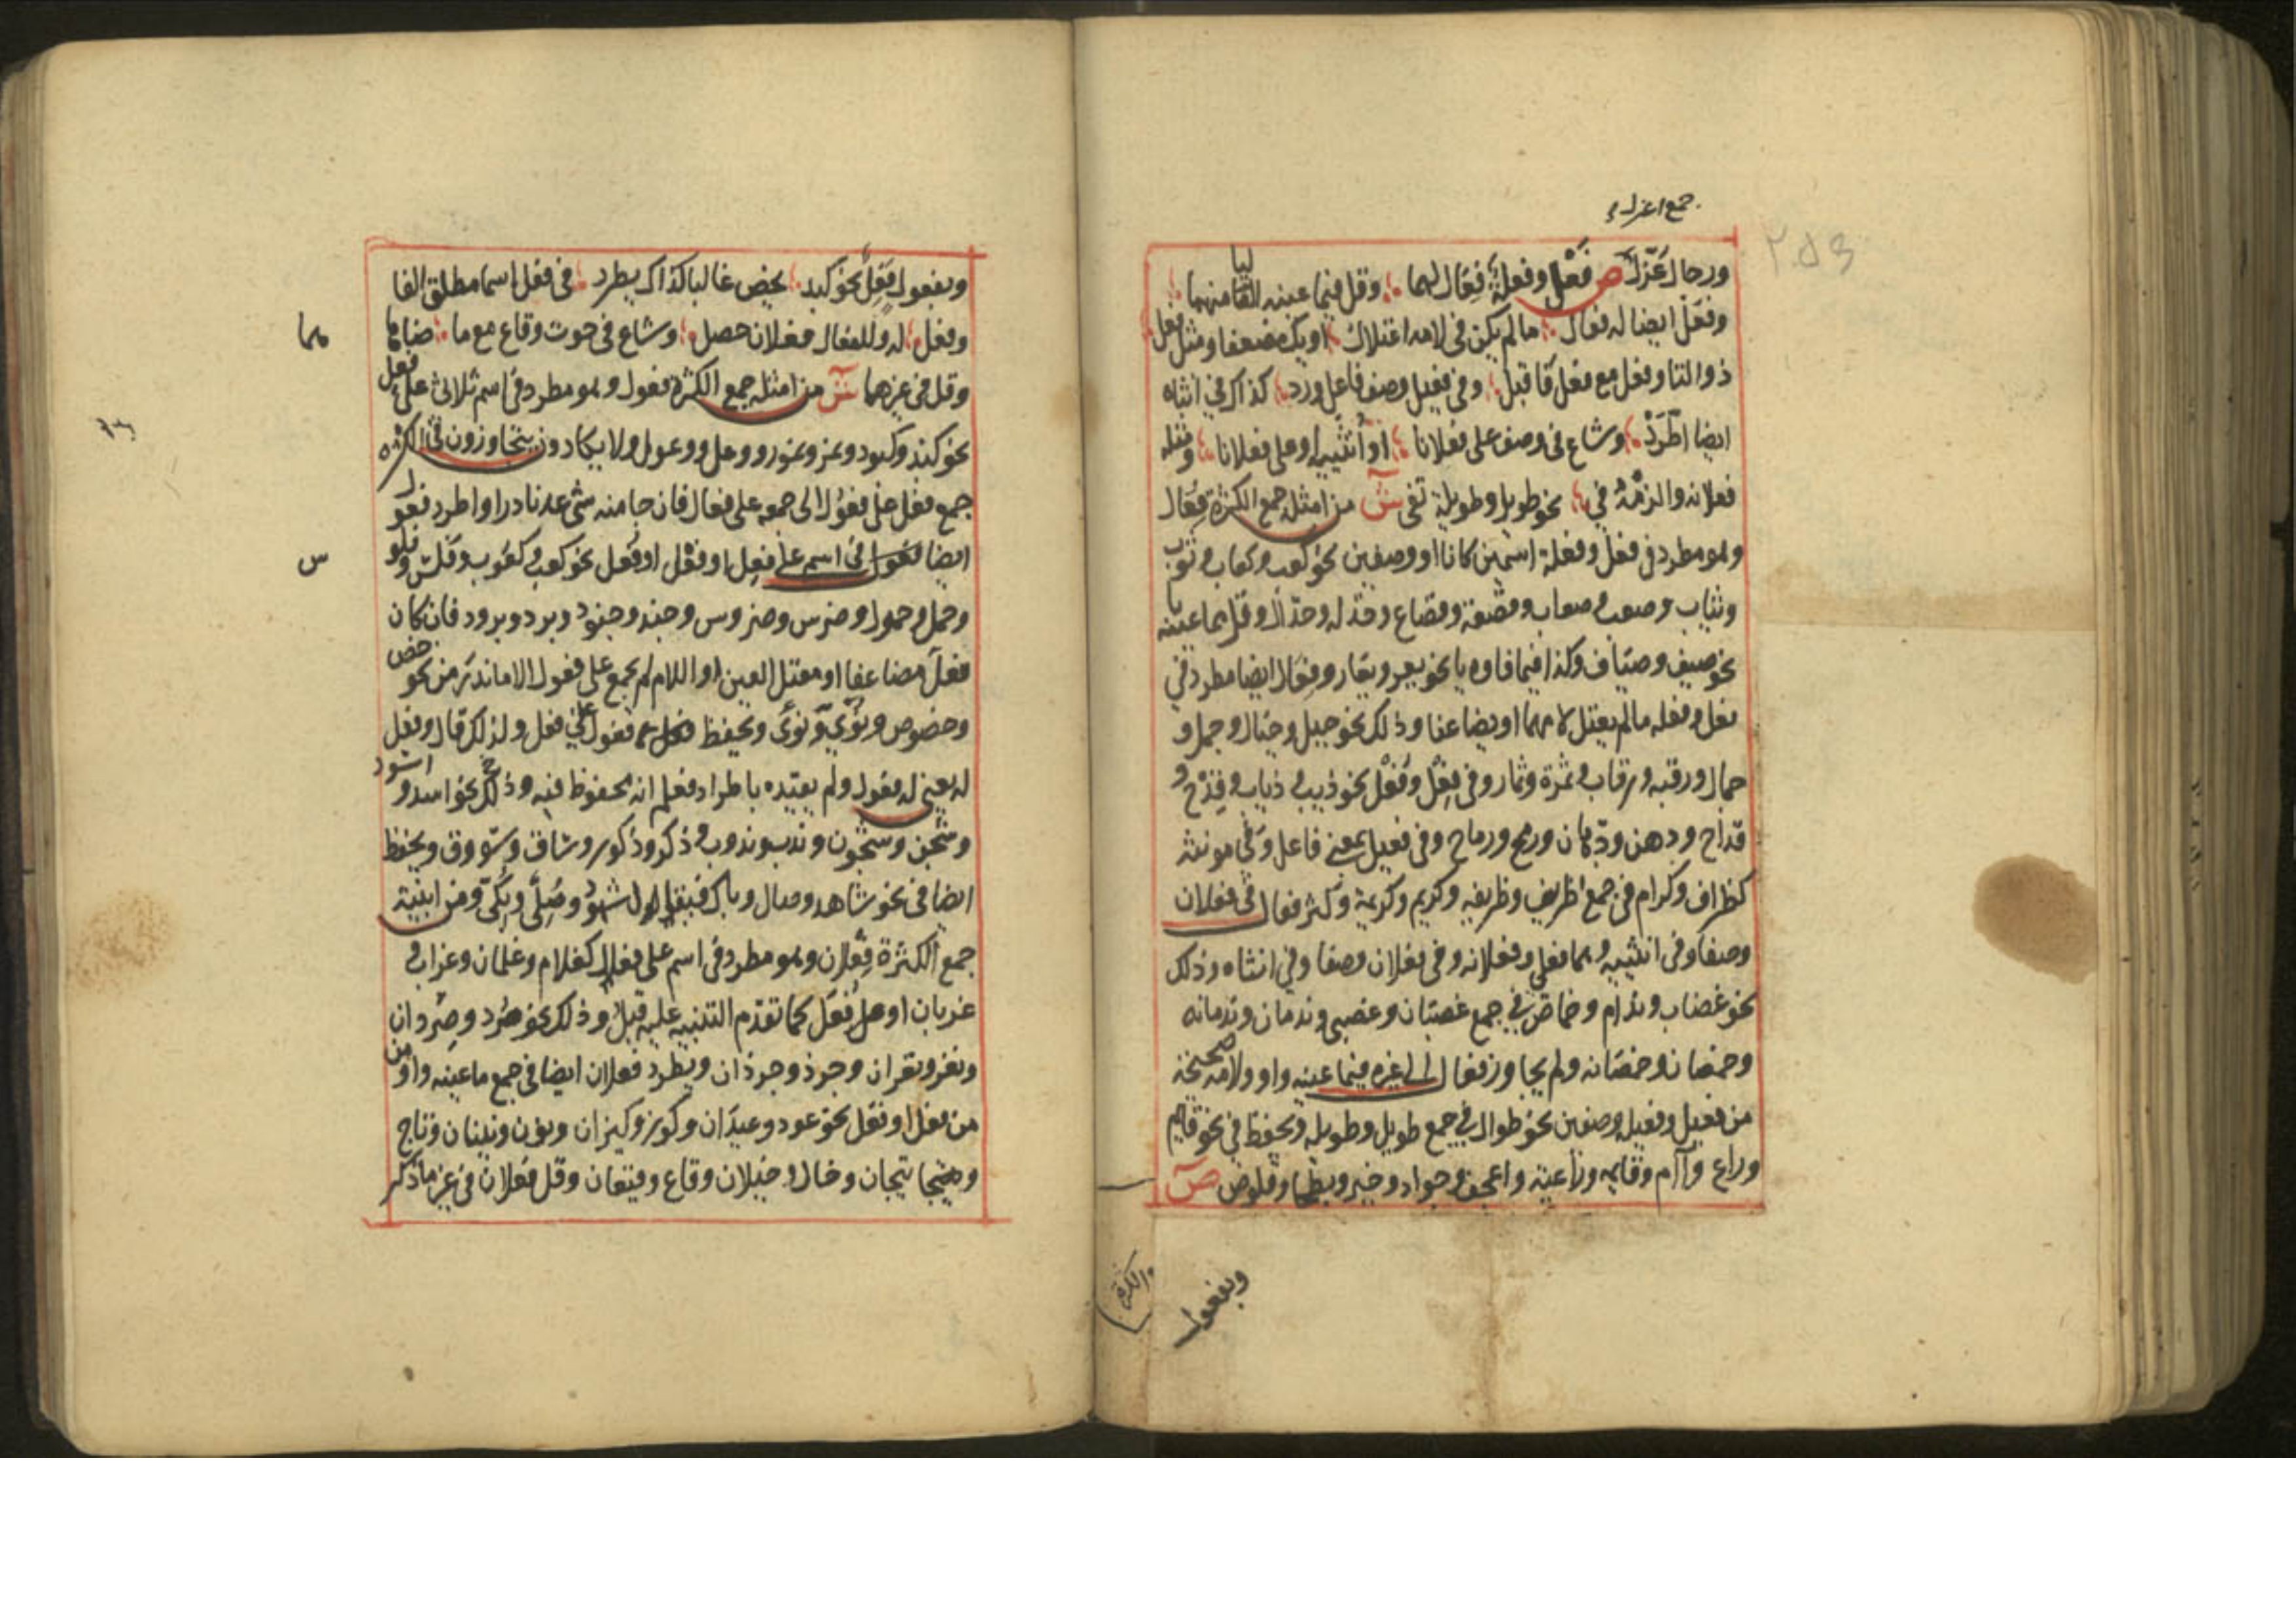 جمع اعزل
ورجال عُزّل ص فَعْل وفعلة فِعَال لهما وقل فيما عينه اليا منهما
وفَعَل ايضا له فعال ما لم يكن في لامه اعتلال او يك مضعفا ومثل فعل
ذو التا وفعل مع فعل فاقبل وفي فعيل وصف فاعل ورد كذاك في انثاه
ايضا اطّرد وشاع في وصف على فعلانا او أنثييه او على فعلانا ومثله
فعلانة والزمه في نحو طويل وطويلة تفي ش من امثله جمع الكثرة فِعَال
وهو مطرد في فعل وفعلة اسمين كانا او وصفين نحو كعب وكعاب وثوب
وثياب وصعب وصعاب وقصعة وقصاع وخدله وخدال وقل فيما عينه يا
نحو ضيف وضياف وكذا فيما فاوه يا نحو يعر ويعار وفعال ايضا مطرد في
فعل وفعله ما لم يعتل لامهما او يضاعفا وذلك نحو جبل وجبال وجمل و
جمال ورقبه ورقاب وثمرة وثمار وفي فِعْل وفُعْل نحو ذيب وذياب وقِدْح و
قداح ودهن ودهان ورمح ورماح وفي فعيل بمعنى فاعل وفي مونثه
كظراف وكرام في جمع ظريف وظريفه وكريم وكريمة وكثر فعال في فعلان
وصفا وفي انثييه وهما فعلى وفعلانه وفي فعلان وصفا وفي انثاه وذلك
نحو غضاب وندام وخماص في جمع غضبان وغضبى وندمان وندمانه
وخمصان وخمصانه ولم يجاوز فعال الى غيره فيما عينه واو ولامه صحيحة
من فعيل وفعيلة وصفين نحو طوال في جمع طويل وطويله ويحفظ في نحو قايم
وراع وآم وقايمه وراعية واعجف وجواد وخير وبطحا وقلوص ص
وبفعول
وبفعول فَعِل نحو كبد يخص غالبا كذاك يطرد في فعل اسما مطلق الفا
وفعل له وللفعال فعلان حصل وشاع في حوت وقاع مع ما ضاهاهما
وقل في غيرهما ش من امثله جمع الكثرة فعول وهو مطرد في اسم ثلاثى على فعل
نحو كبد وكبود ونمر ونمور ووعل ووعول ولا يكادون يتجاوزون في الكثره
جمع فعل على فعول الى جمعه على فعال فان جا منه شى عد نادرا واطرد فعول
ايضا فعول في اسم على فعل او فعل او فعل نحو كعب وكعوب وفلس وفلو
س وحمل وحمول وضرس وضروس وجند وجنود وبرد وبرود فان كان
فعل مضاعفا او معتل العين او اللام لم يجمع على فعول الا ما ندر من نحو خص
وخصوص ونُؤي ونُؤيّ ويحفظ فعول في فعل ولذلك قال وفعل
له يعنى له فعول ولم يقيده باطراد فعلم انه محفوظ فيه وذلك نحو اسد و اسود
وشجن وشجون وندب وندوب وذكر وذكور وساق وسووق ويحفظ
ايضا في نحو شاهد وصال وباك فيقال شهود وصُلِيّ وبُكِيّ ومن ابنية
جمع الكثرة فِعْلان وهو مطرد في اسم على فعال كغلام وغلمان وغراب و
غربان او على فُعَل كما تقدم التنبيه عليه قبل وذلك نحو صرد وصردان
ونغر ونغران وجرذ وجرذان ويطرد فعلان ايضا في جمع ما عينه واو
من فعل او فعل نحو عود وعيدان وكوز وكيزان ونون ونينان وتاج
وتيجان وخال وخيلان وقاع وقيعان وقل فعلان في غير ما ذكر